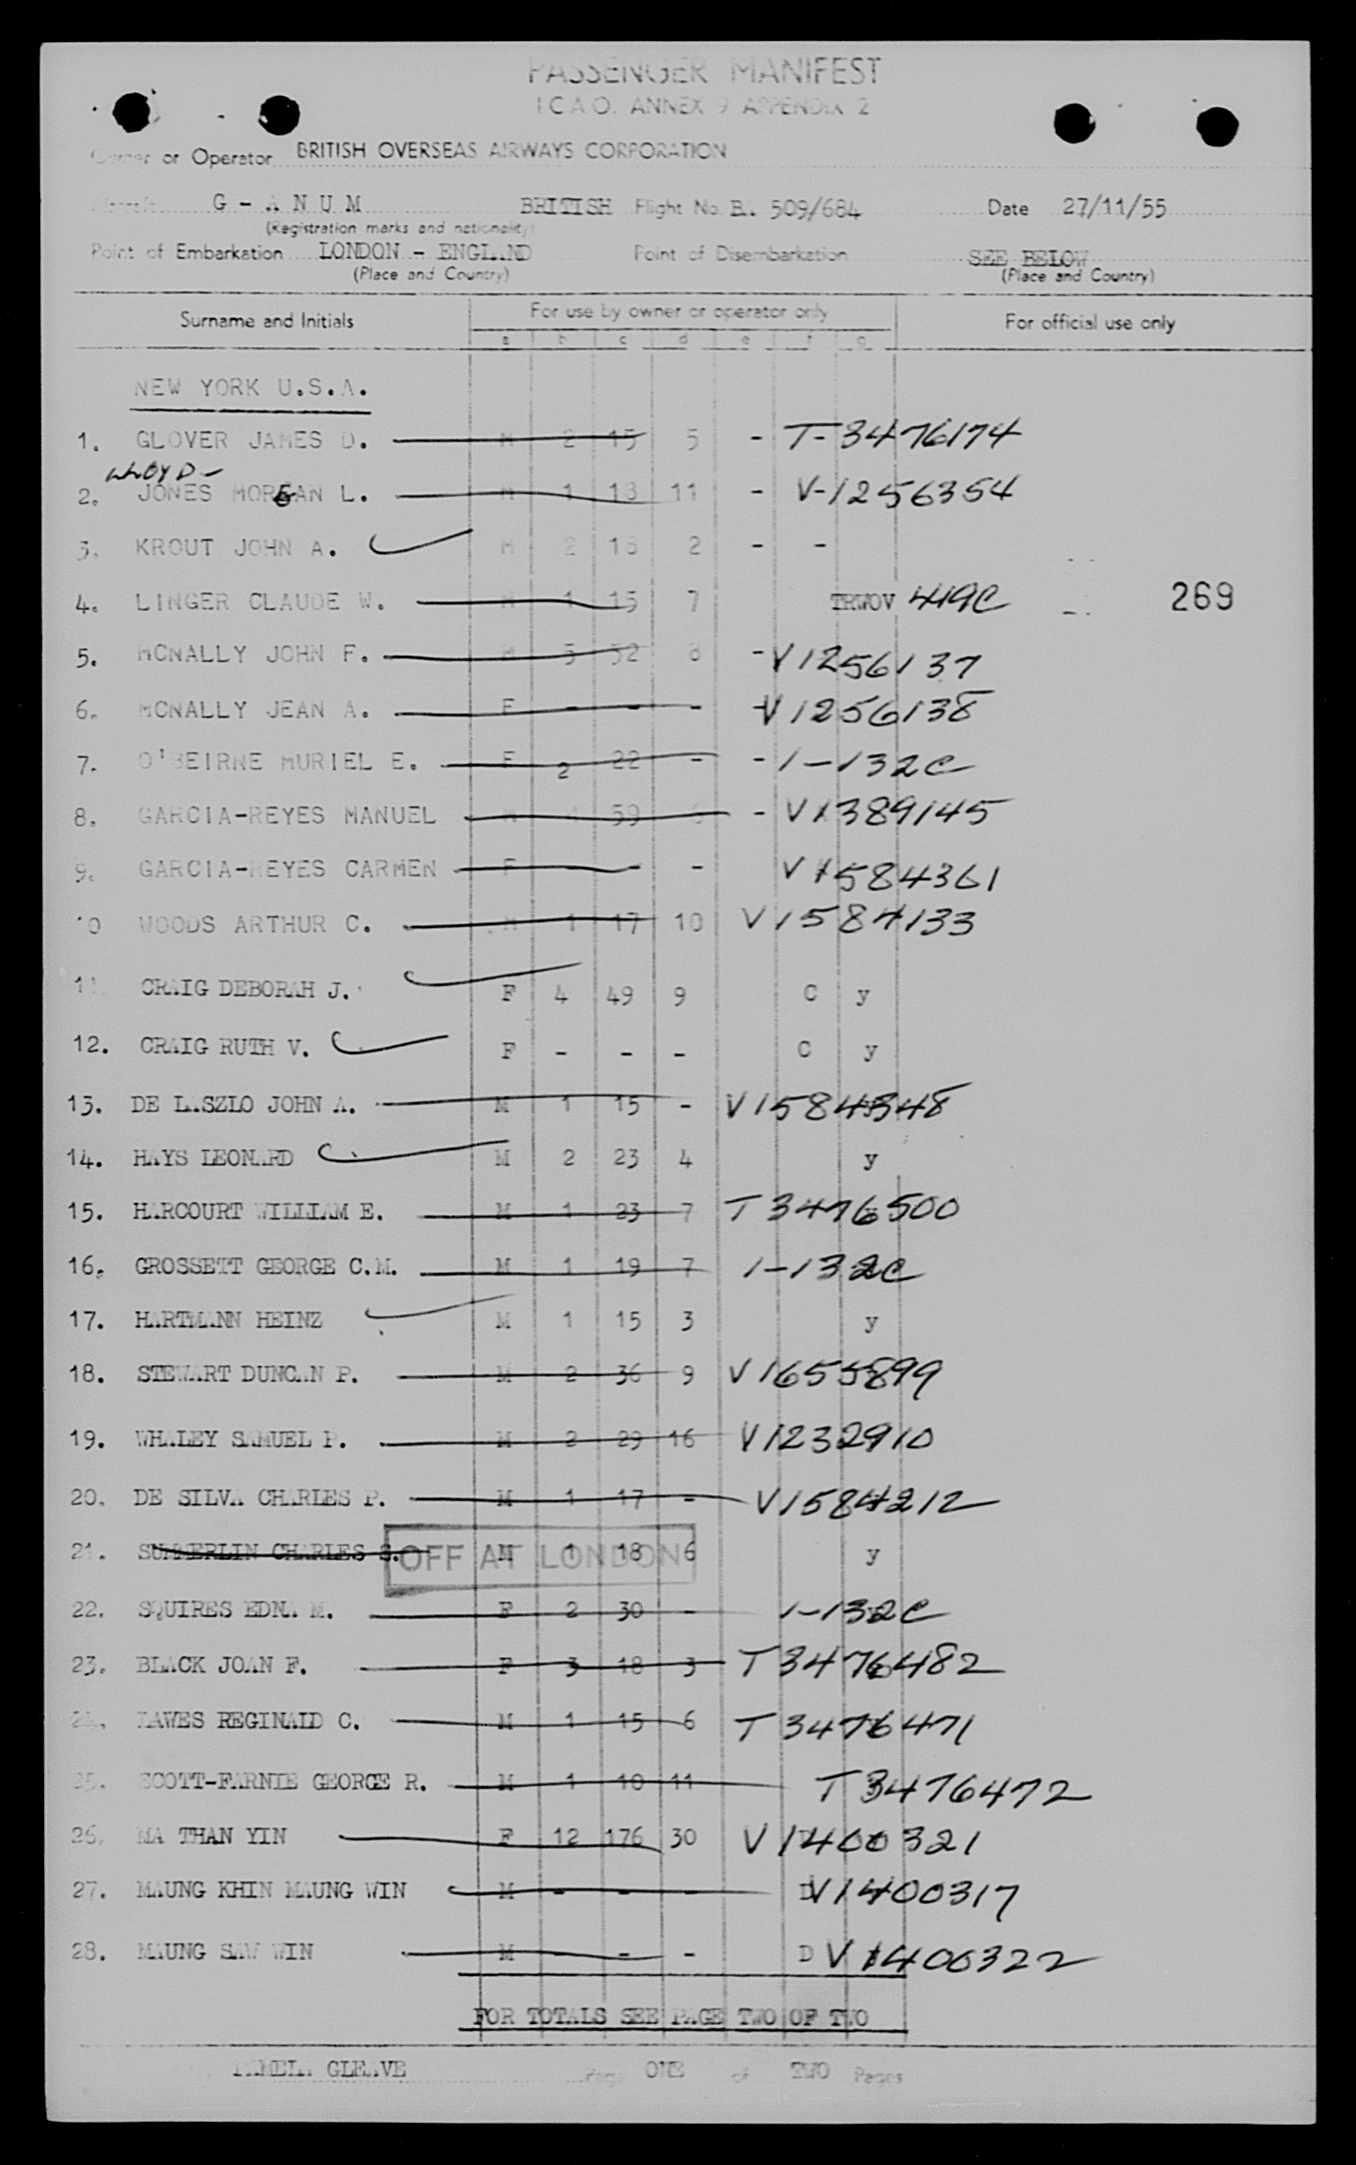 PASSENGER MANIFEST
I.C.A.O. ANNEX 9 APPENDIX 2
Owner or Operator BRITISH OVERSEAS AIRWAYS CORPORATION
Aircraft G - A N U M BRITISH Flight No. B. 509/684 Date 27/11/55
(Registration marks and nationality)
Point of Embarkation LONDON - ENGLAND Point of Disembarkation SEE BELOW
(Place and Country) (Place and Country)
Surname and Initials For use by owner or operator only For official use only
a b c d e f g
NEW YORK U.S.A.
1. GLOVER JAMES D. M 2 15 5 - T-3476174
LLOYD
2. JONES MORGAN L. M 1 18 11 - V-1256354
3. KROUT JOHN A. M 2 18 2 - -
4. LINGER CLAUDE W. M 1 15 7 TRWOV 419C 269
5. MCNALLY JOHN F. M 5 52 8 - V1256137
6. MCNALLY JEAN A. F - - - V1256138
7. O'BEIRNE MURIEL E. F 2 22 - - 1-132C
8. GARCIA-REYES MANUEL M 4 59 - V1389145
9. GARCIA-REYES CARMEN F - - - V1584361
10 WOODS ARTHUR C. M 1 17 10 V1584133
11. CRAIG DEBORAH J. F 4 49 9 C y
12. CRAIG RUTH V. F - - - C y
13. DE LASZLO JOHN A. M 1 15 - V1584348
14. HAYS LEONARD M 2 23 4 y
15. HARCOURT WILLIAM E. M 1 23 7 T3476500
16. GROSSETT GEORGE C.M. M 1 19 7 1-132C
17. HARTMANN HEINZ M 1 15 3 y
18. STEWART DUNCAN P. M 2 36 9 V1655899
19. WHALEY SAMUEL P. M 2 29 16 V1232910
20. DE SILVA CHARLES P. M 1 17 - V1584212
21. SUMMERLIN CHARLES S. M 1 18 6 y
OFF AT LONDON
22. SQUIRES EDNA M. F 2 30 - 1-132C
23. BLACK JOAN F. F 3 18 3 T3476482
24. TAWES REGINALD C. M 1 15 6 T3476471
25. SCOTT-FARNIE GEORGE R. M 1 10 11 T3476472
26. MA THAN YIN F 12 176 30 V1400321
27. MAUNG KHIN MAUNG WIN M - - - D V1400317
28. MAUNG SAW WIN M - - - D V1400322
FOR TOTALS SEE PAGE TWO OF TWO
PAMELA GLEAVE Page ONE of TWO Pages